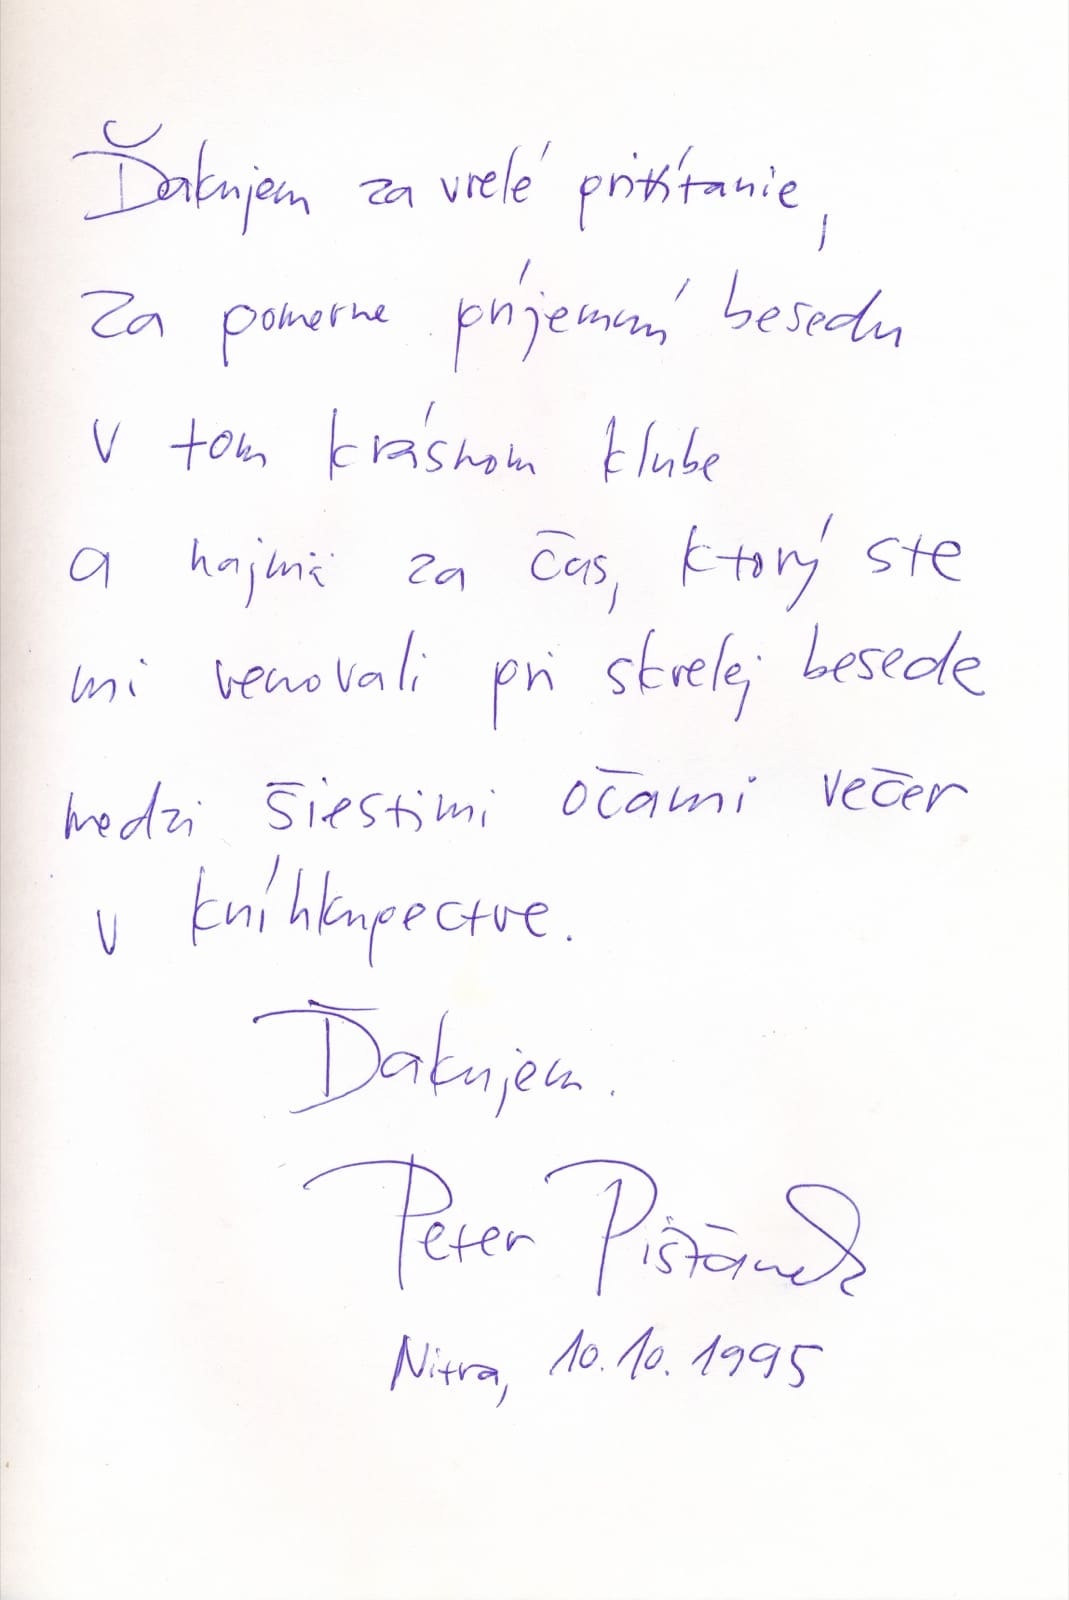 Ďakujem za vrelé privítanie,
za pomerne príjemnú besedu
v tom krásnom klube
a najmä za čas, ktorý ste
mi venovali pri skvelej besede
medzi šiestimi očami večer
v kníhkupectve.
Ďakujem.
Peter Pišťanek
Nitra, 10.10.1995